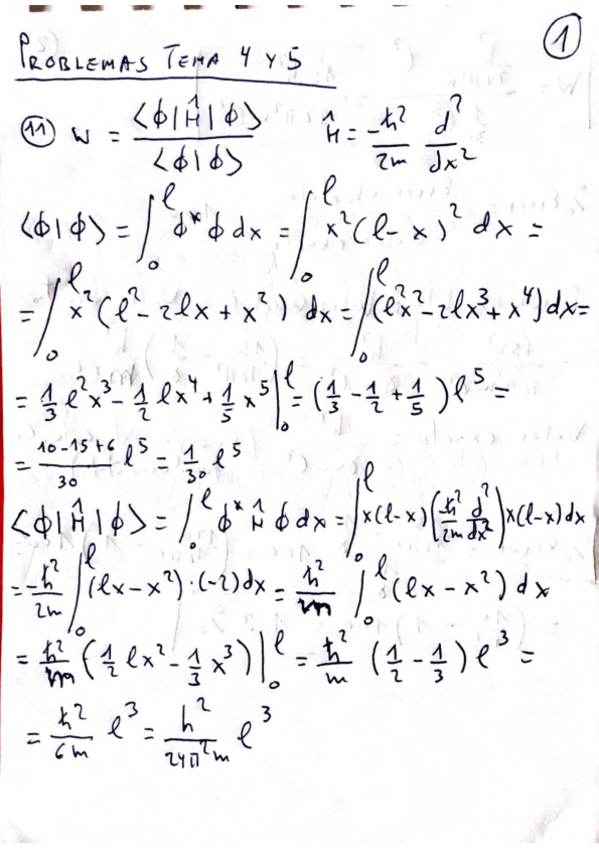 1
PROBLEMAS TEMA 4 Y 5
11 W = <ϕ|Ĥ|ϕ> / <ϕ|ϕ>   Ĥ = -ħ²/2m d²/dx²
<ϕ|ϕ> = ∫₀^ℓ ϕ* ϕ dx = ∫₀^ℓ x²(ℓ-x)² dx =
= ∫₀^ℓ x²(ℓ²-2ℓx+x²) dx = ∫₀^ℓ (ℓ²x²-2ℓx³+x⁴) dx =
= 1/3 ℓ²x³ - 1/2 ℓx⁴ + 1/5 x⁵ |₀^ℓ = (1/3 - 1/2 + 1/5) ℓ⁵ =
= (10-15+6)/30 ℓ⁵ = 1/30 ℓ⁵
<ϕ|Ĥ|ϕ> = ∫₀^ℓ ϕ* Ĥ ϕ dx = ∫₀^ℓ x(ℓ-x) (-ħ²/2m d²/dx²) x(ℓ-x) dx
= -ħ²/2m ∫₀^ℓ (ℓx-x²)·(-2) dx = ħ²/m ∫₀^ℓ (ℓx-x²) dx
= ħ²/m (1/2 ℓx² - 1/3 x³) |₀^ℓ = ħ²/m (1/2 - 1/3) ℓ³ =
= ħ²/6m ℓ³ = h²/24π²m ℓ³